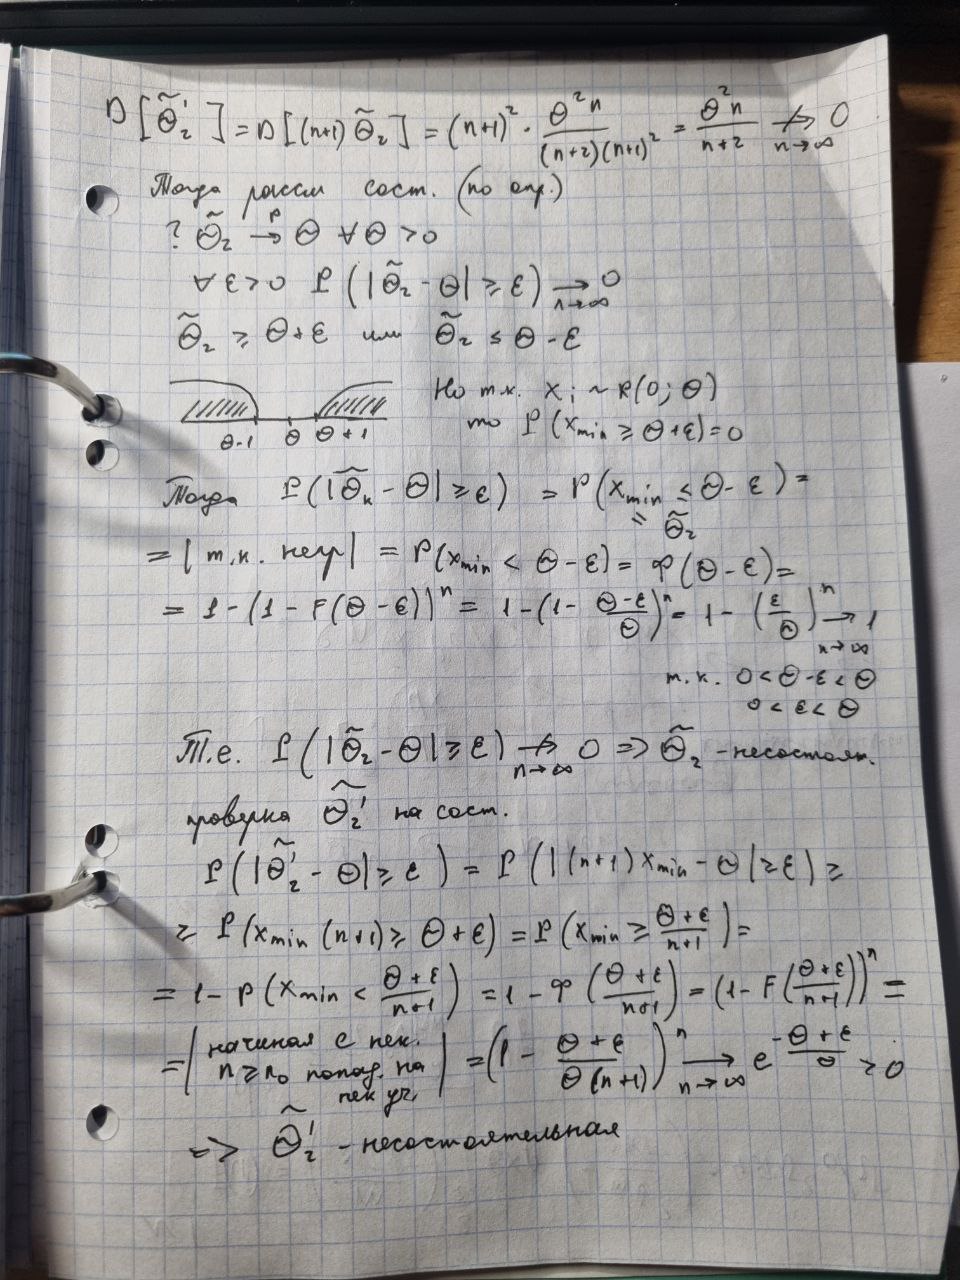 D[θ̃₂'] = D[(n+1) θ̃₂] = (n+1)² · θ²n/((n+2)(n+1)²) = θ²n/(n+2) ↛ 0 n→∞
Тогда рассм сост. (по опр.)
? θ̃₂ →ᴾ θ ∀θ > 0
∀ε > 0 P(|θ̃₂ - θ| ≥ ε) → 0 n→∞
θ̃₂ ≥ θ+ε или θ̃₂ ≤ θ-ε
Но т.к. Xᵢ ~ R(0; θ)
то P(x_min ≥ θ+ε) = 0
θ-1 θ θ+1
Тогда P(|θ̃ₙ - θ| ≥ ε) = P(x_min ≤ θ-ε) =
= θ̃₂
= |т.к. непр| = P(x_min < θ-ε) = φ(θ-ε) =
= 1-(1-F(θ-ε))ⁿ = 1-(1-(θ-ε)/θ)ⁿ = 1-(ε/θ)ⁿ → 1 n→∞
т.к. 0 < θ-ε < θ
0 < ε < θ
Т.е. P(|θ̃₂ - θ| ≥ ε) ↛ 0 n→∞ => θ̃₂ - несостоят.
проверка θ̃₂' на сост.
P(|θ̃₂' - θ| ≥ ε) = P(|(n+1) x_min - θ| ≥ ε) ≥
≥ P(x_min (n+1) ≥ θ+ε) = P(x_min ≥ (θ+ε)/(n+1)) =
= 1 - P(x_min < (θ+ε)/(n+1)) = 1 - φ((θ+ε)/(n+1)) = (1-F((θ+ε)/(n+1)))ⁿ =
= |начиная с нек.
n ≥ n₀ попад. на
нек уч.| = (1 - (θ+ε)/(θ(n+1)))ⁿ → n→∞ e^(-(θ+ε)/θ) > 0
=> θ̃₂' - несостоятельная